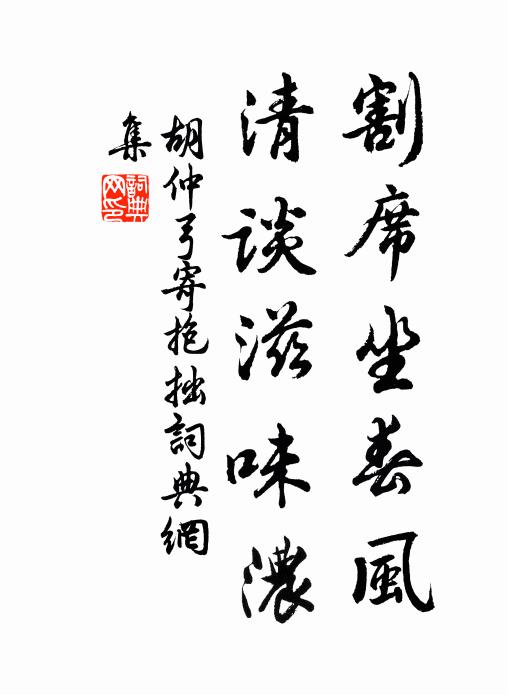 割席坐春風
清談滋味濃
胡仲弓寄抱拙詞典網
集
詞典
网印